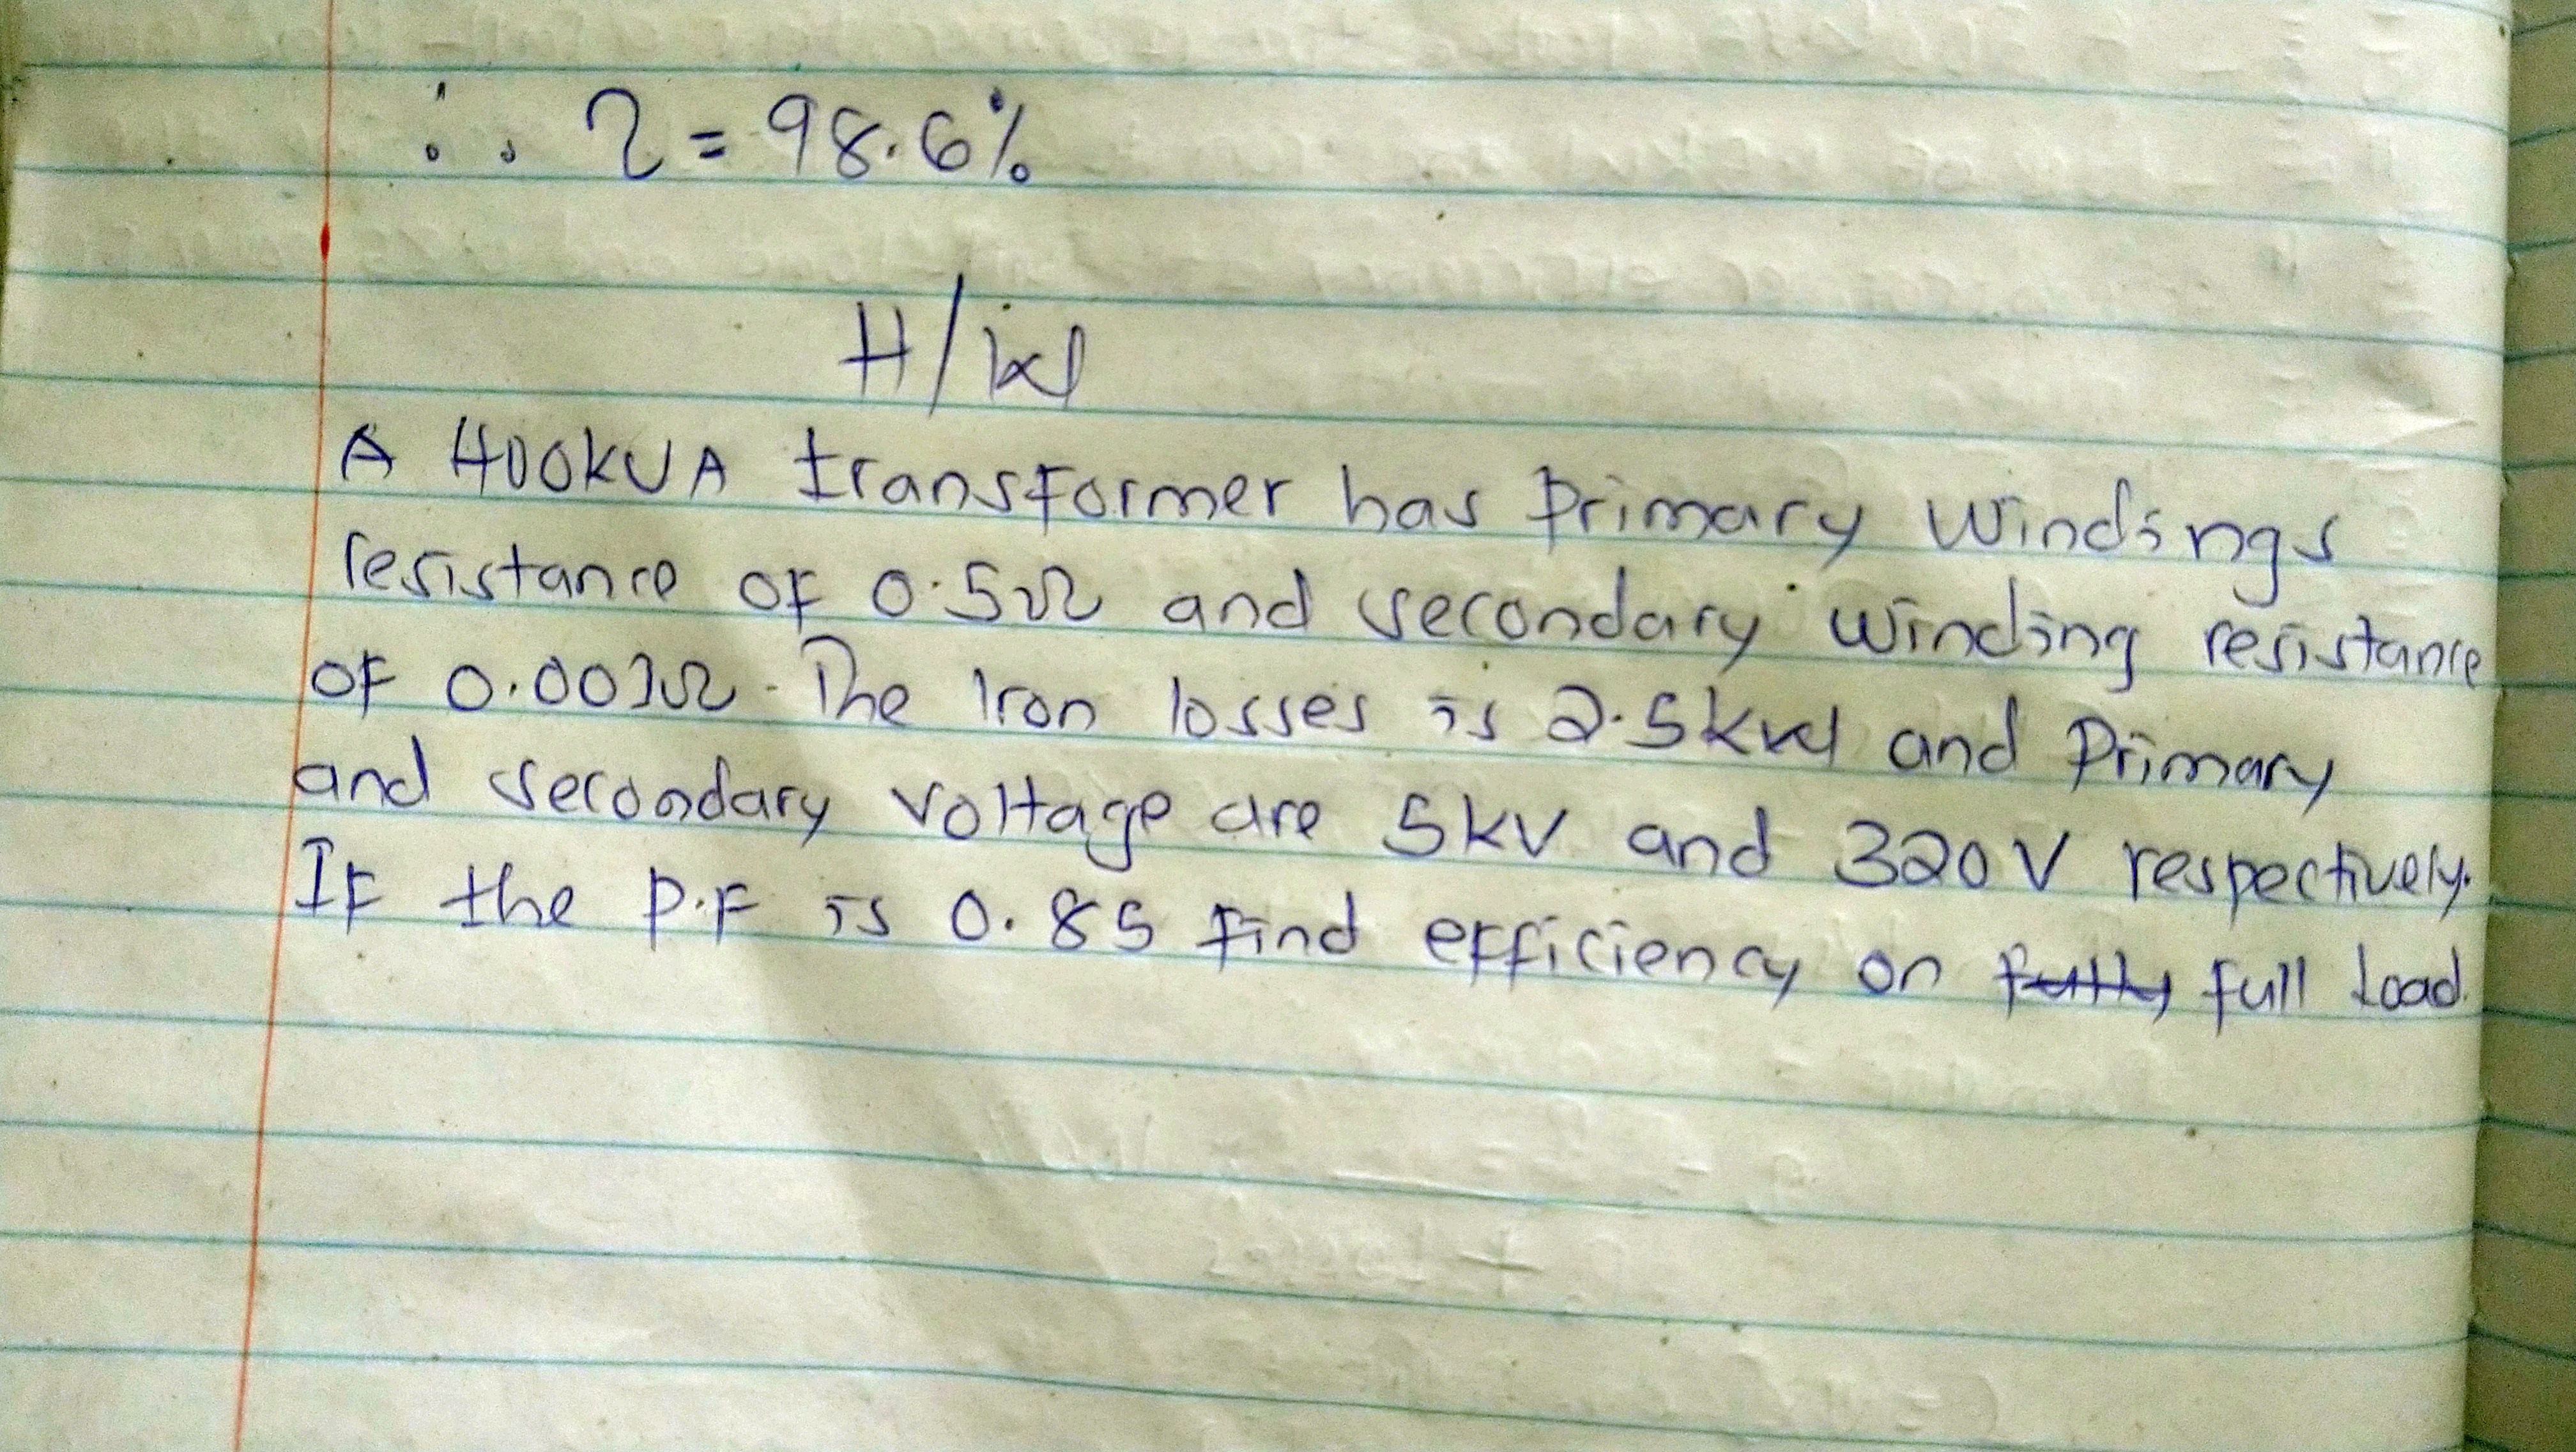 ∴ η = 98.6%
H/W
A 400KVA transformer has Primary windings
resistance of 0.5Ω and secondary winding resistance
of 0.001Ω. The Iron losses is 2.5kW and Primary
and secondary voltage are 5kV and 320V respectively.
If the P.F is 0.85 find efficiency on fully full load.